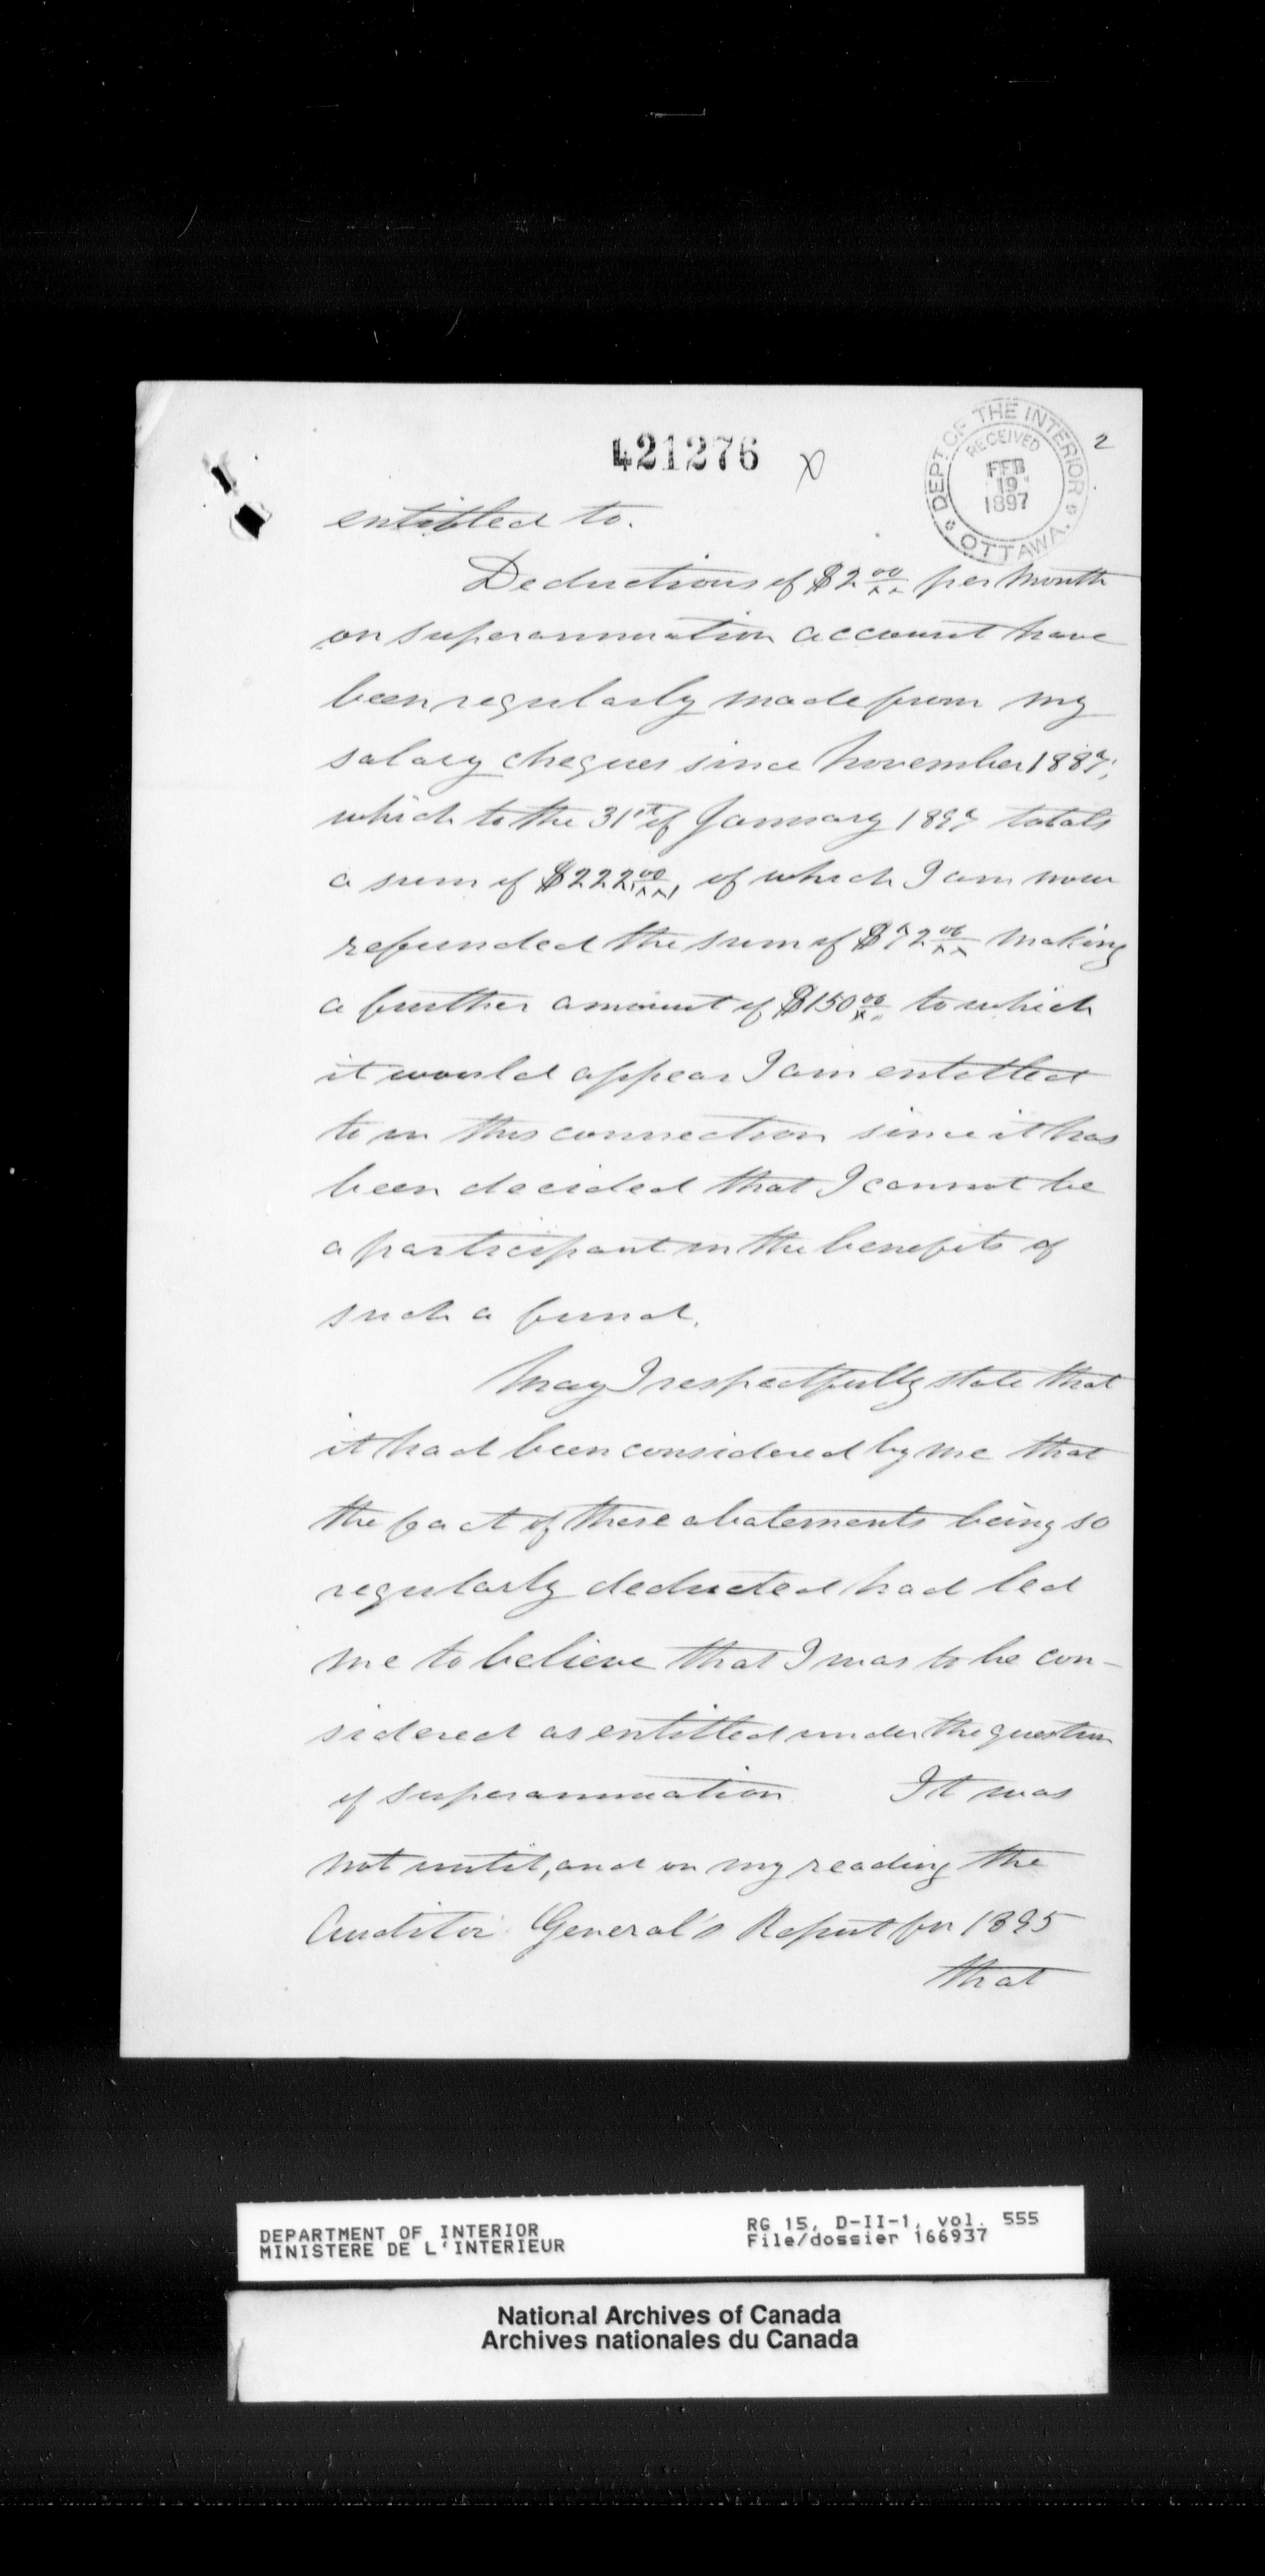 421276
2
DEPT. OF THE INTERIOR
RECEIVED
FEB
19
1897
OTTAWA.
entitled to.
Deductions of $2 00/xx per month
on superannuation account have
been regularly made from my
salary cheques since November 1887,
which to the 31st of January 1897 totals
a sum of $222 00/xx, of which I am now
refunded the sum of $72 00/xx making
a further amount of $150 00/xx to which
it would appear I am entitled
to in this connection since it has
been decided that I cannot be
a participant in the benefits of
such a fund.
May I respectfully state that
it had been considered by me that
the fact of these abatements being so
regularly deducted had led
me to believe that I was to be con-
sidered as entitled under the question
of superannuation. It was
not until, and on my reading the
Auditor General's Report for 1895
that
DEPARTMENT OF INTERIOR
MINISTERE DE L'INTERIEUR
RG 15, D-II-1, vol. 555
File/dossier 166937
National Archives of Canada
Archives nationales du Canada